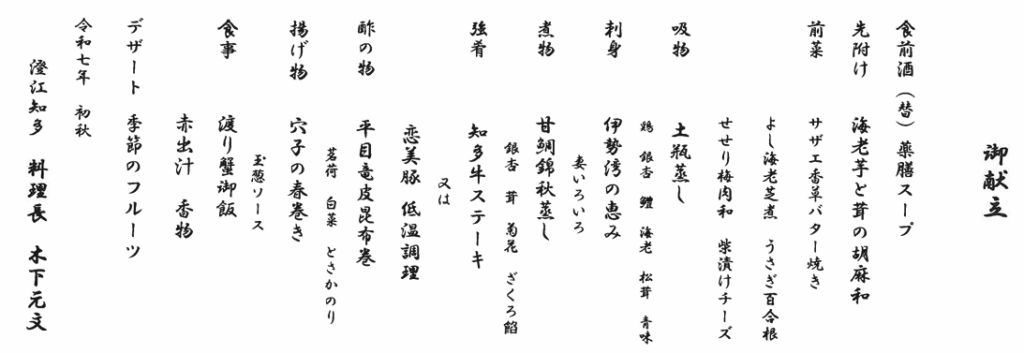 御献立
食前酒(替) 薬膳スープ
先附け 海老芋と茸の胡麻和
前菜 サザエ香草バター焼き
よし海老芝煮 うさぎ百合根
せせり梅肉和 柴漬けチーズ
吸物 土瓶蒸し
鶏 銀杏 鱧 海老 松茸 青味
刺身 伊勢湾の恵み
妻いろいろ
煮物 甘鯛錦秋蒸し
銀杏 茸 菊花 ざくろ餡
強肴 知多牛ステーキ
又は
恋美豚 低温調理
酢の物 平目竜皮昆布巻
茗荷 白菜 とさかのり
揚げ物 穴子の春巻き
玉葱ソース
食事 渡り蟹御飯
赤出汁 香物
デザート 季節のフルーツ
令和七年 初秋
澄江知多 料理長 木下元文